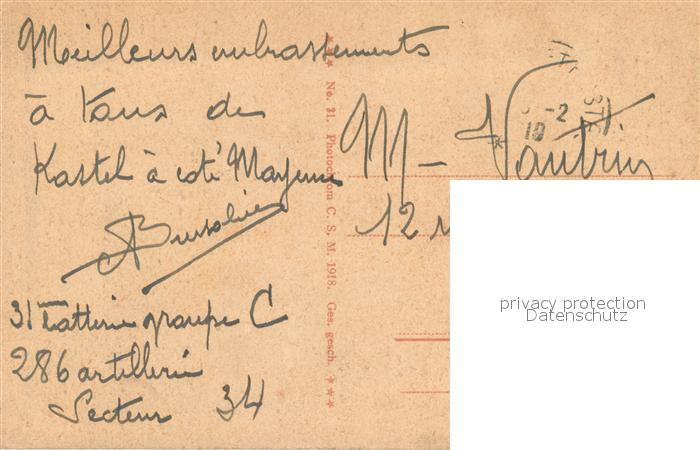 Meilleurs embrassements
à tous de
Kastel à coté Mayence
31 batterie groupe C
286 artillerie
Secteur 34
No. 31. Photochrom C. S. M. 1918. Ges. gesch.
M- Vautrin
12
privacy protection
Datenschutz